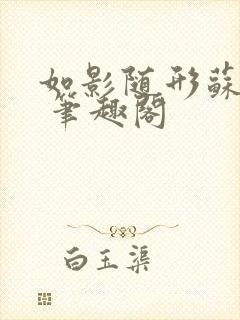 如影随形蘇
笔趣阁
白玉渠